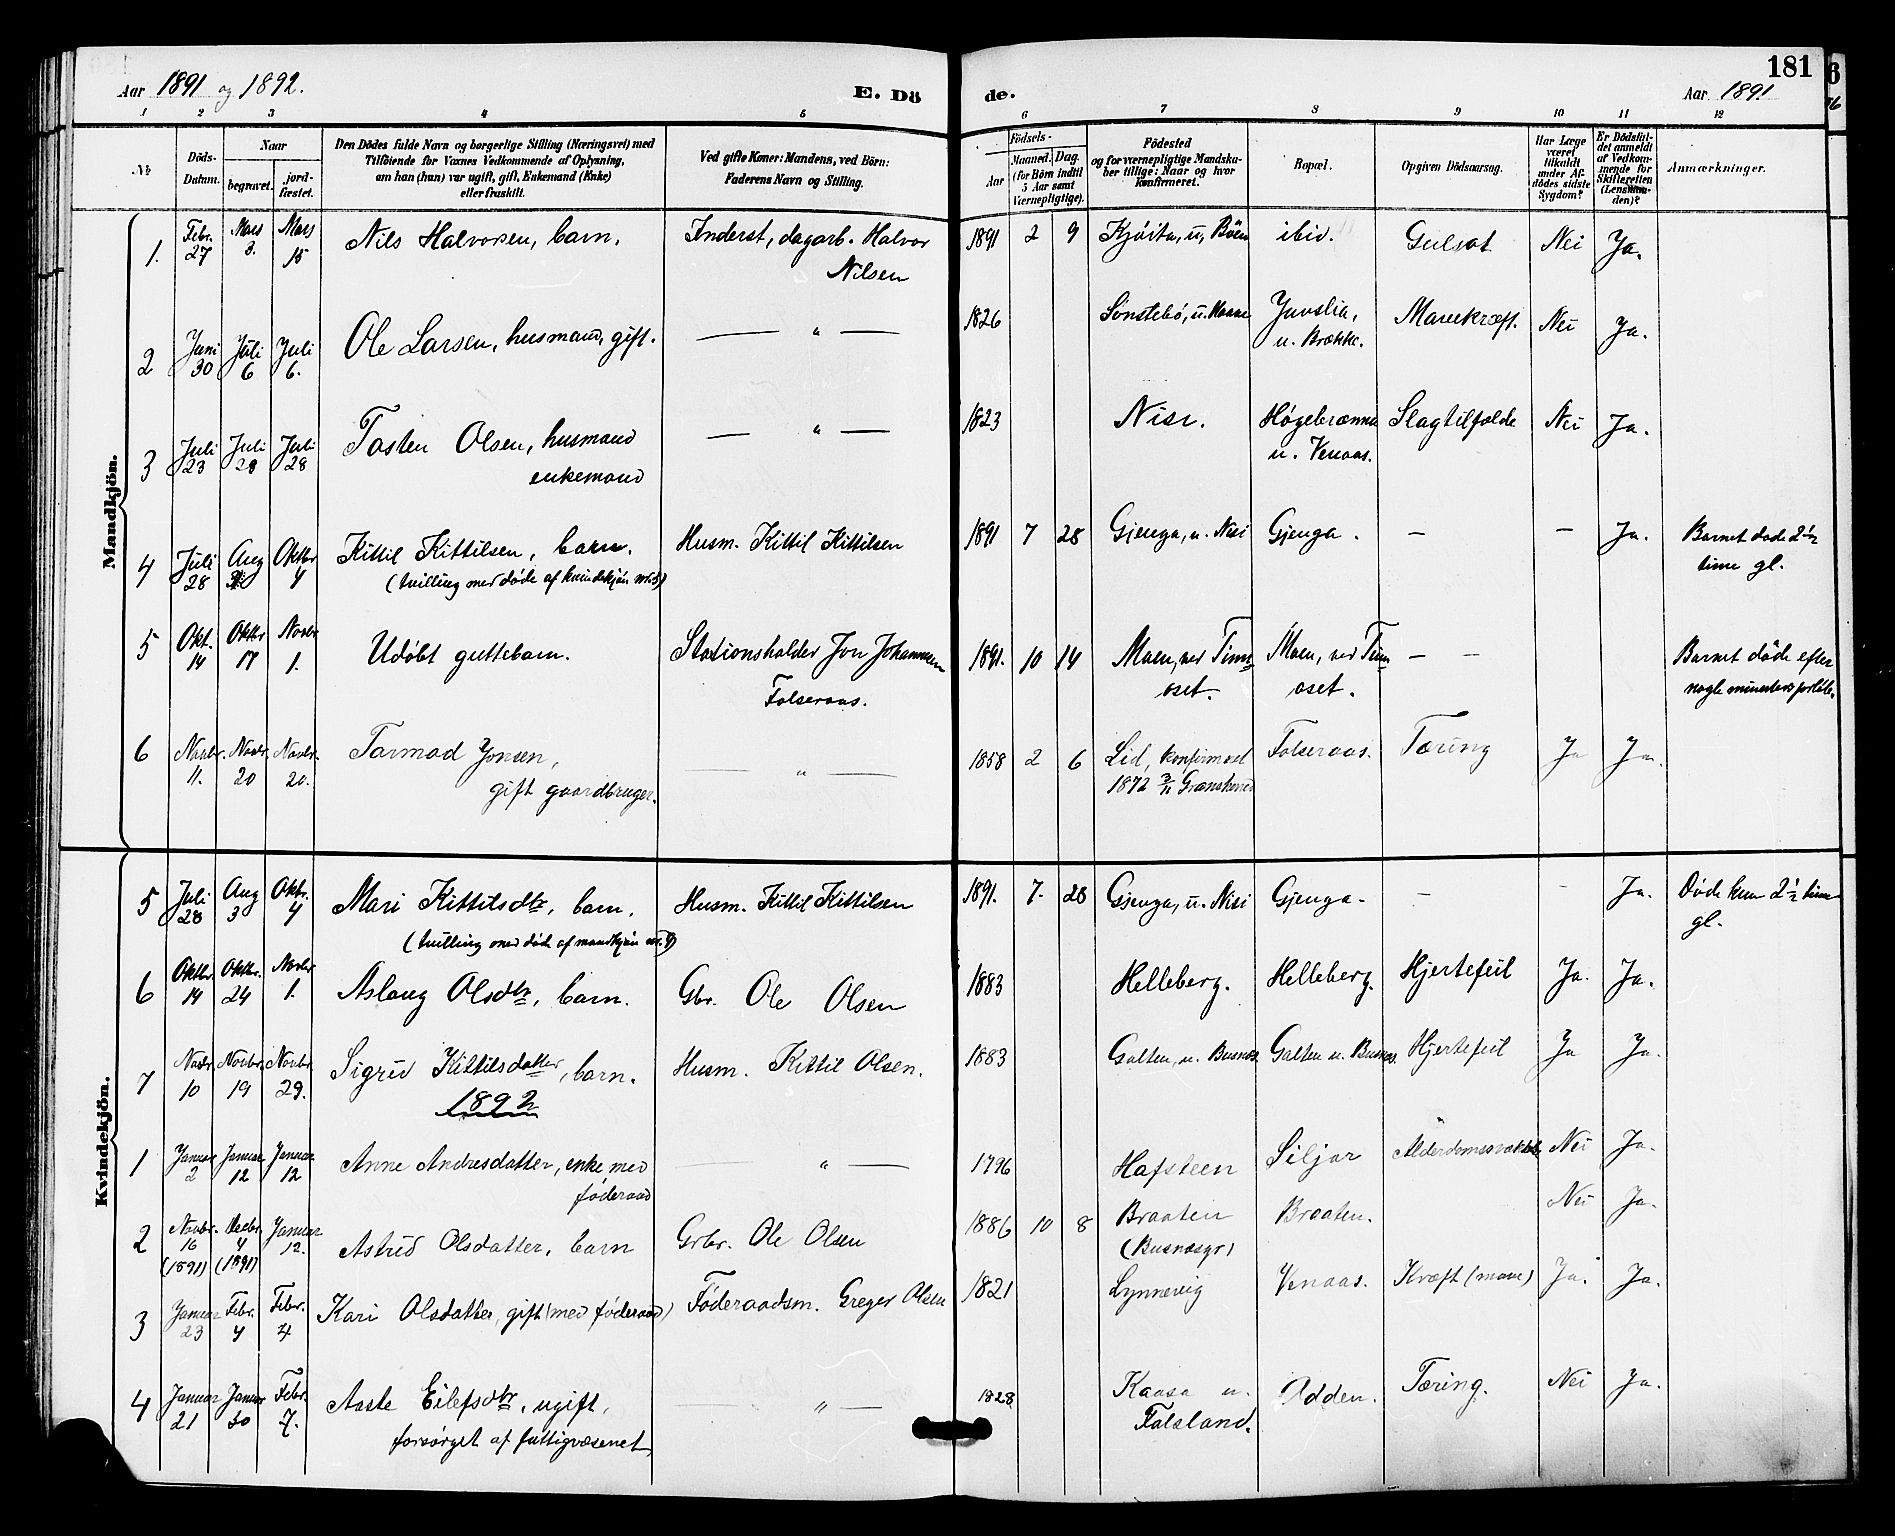 181
Aar 1891 og 1892. E. Dö de. Aar 1891
1 2 3 4 5 6 7 8 9 10 11 12
№ Döds-Datum. Naar begravet. jord-fæstet. Den Dödes fulde Navn og borgerlige Stilling (Næringsvei) med Tilföiende for Voxnes Vedkommende af Oplysning, om han (hun) var ugift, gift, Enkemand (Enke) eller fraskilt. Ved gifte Koner: Mandens, ved Börn: Faderens Navn og Stilling. Födsels- Aar Maaned. Dag. (for Börn indtil 5 Aar samt Værnepligtige). Födested og for værnepligtige Mandskaber tillige: Naar og hvor Konfirmeret. Bopæl. Opgiven Dödsaarsag. Har Læge været tilkaldt under Afdödes sidste Sygdom? Er Dödsfaldet anmeldt af Vedkommende for Skifteretten (Lensmanden)? Anmærkninger.
Mandkjön.
1. Febr. 27 Mars 3. Mars 15 Nils Halvorsen, barn. Inderst, dagarb. Halvor Nilsen 1891 2 9 Kjösta, u, Böen ibid. Gulsot Nei Ja.
2 Juni 30 Juli 6 Juli 6. Ole Larsen, husmand, gift. — " — 1826 Sönstebö, u. Juvslia, u. Brække. Mavekræft. Nei Ja.
3 Juli 23 Juli 28 Juli 28 Tosten Olsen, husmand enkemand — " — 1823 Nisi. Høgebrænna u. Venaas. Slagtilfælde Nei Ja.
4 Juli 28 Aug Oktbr 4 Kittil Kittilsen, barn. (tvilling med døde af kvindekjön nr. 5) Husm. Kittil Kittilsen 1891 7 28 Gjenga, u. Nisi Gjenga. — — Ja. Barnet døde 2½ time gl.
5 Okt. 14 Oktbr 17 Novbr 1. Udöbt guttebarn. Stationsholder Jon Johannesen Folseraas. 1891. 10 14 Moen, ved Tinnoset. Moen, ved Tinnoset. — — Barnet döde efter nogle minuters forløb.
6 Novbr. 11. Novbr. 20 Novbr. 20. Tarmod Jonsen, gift gaardbruger. — " — 1858 2 6 Lid, konfirmeret 1872 3/11 Gransherred Folseraas. Tæring Ja Ja.
Kvindekjön.
5 Juli 28 Aug 3 Oktbr. 4 Mari Kittilsdtr, barn. (tvilling med døde af mandkjön nr. 4) Husm. Kittil Kittilsen 1891. 7. 28 Gjenga, u. Nisi Gjenga. — — Ja. Døde kun 2½ time gl.
6 Oktbr. 14 Oktbr. 24 Novbr 1. Aslaug Olsdtr, barn. Gbr. Ole Olsen 1883 Helleberg. Helleberg. Hjertefeil Ja. Ja.
7 Novbr. 10 Novbr. 19 Novbr. 29. Sigrid Kittilsdatter, barn. Husm. Kittil Olsen. 1883 Galten, u. Busnes. Galten u. Busnes. Hjertefeil Ja Ja.
1892
1 Januar 2 Januar 12 Januar 12 Anne Andresdatter, enke med föderaad — " — 1796 Hafsteen Siljor Alderdomssvækkelse Nei Ja.
2 Novbr. 16 (1891) Decbr. 4 (1891) Januar 12. Astrid Olsdatter, barn Grbr. Ole Olsen 1886 10 8 Braaten (Busnesgr) Braaten. Nei Ja.
3 Januar 23 Febr. 4 Febr. 4 Kari Olsdatter, gift (med föderaad) Föderaadsm. Greger Olsen 1821 Lynnevig Venaas. Kræft (mave) Ja. Ja.
4 Januar 21 Januar 30 Febr. 7. Aaste Eilefsdtr, ugift, forsörget af fattigvæsenet, " — 1828 Kaasa u. Folsland. Odden. Tæring. Nei Ja.